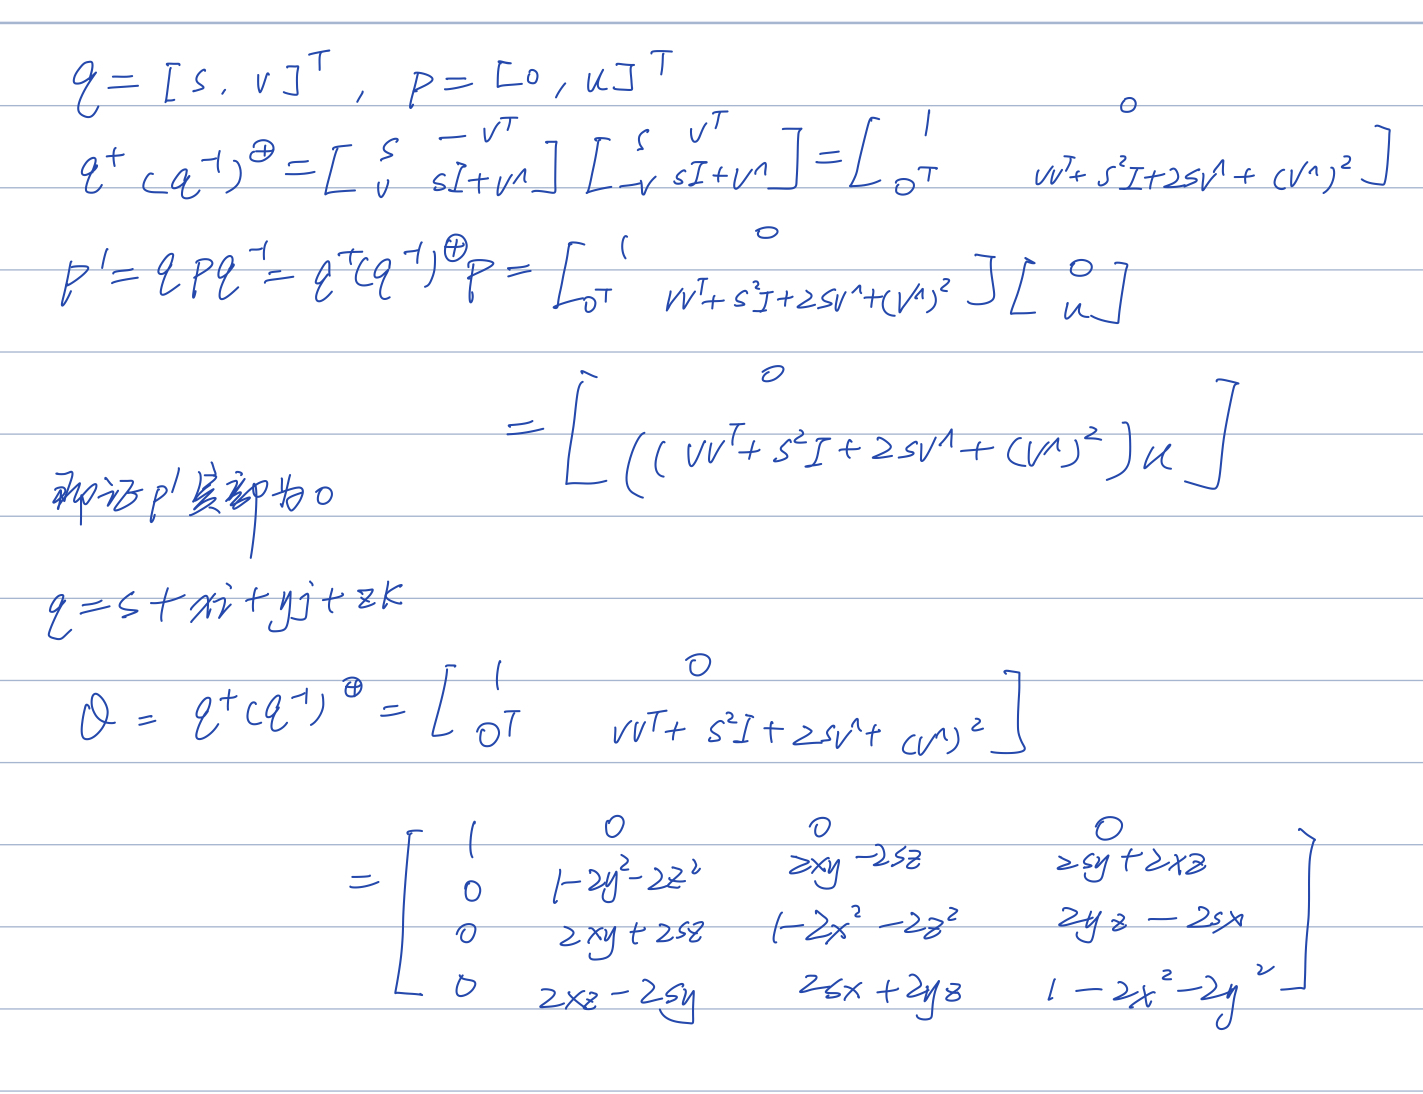 q = [s, v]^T, p = [0, u]^T
q^+ (q^{-1})^⊕ = [s -v^T; v sI+v^∧] [s v^T; -v sI+v^∧] = [1 0; 0^T vv^T+s^2I+2sv^∧+(v^∧)^2]
p' = qpq^{-1} = q^+(q^{-1})^⊕p = [1 0; 0^T vv^T+s^2I+2sv^∧+(v^∧)^2] [0; u]
= [0; ((vv^T+s^2I+2sv^∧+(v^∧)^2)u]
即证p'实部为0
q=s+xi+yj+zk
Q = q^+(q^{-1})^⊕ = [1 0; 0^T vv^T+s^2I+2sv^∧+(v^∧)^2]
= [1 0 0 0
0 1-2y^2-2z^2 2xy-2sz 2sy+2xz
0 2xy+2sz 1-2x^2-2z^2 2yz-2sx
0 2xz-2sy 2sx+2yz 1-2x^2-2y^2]